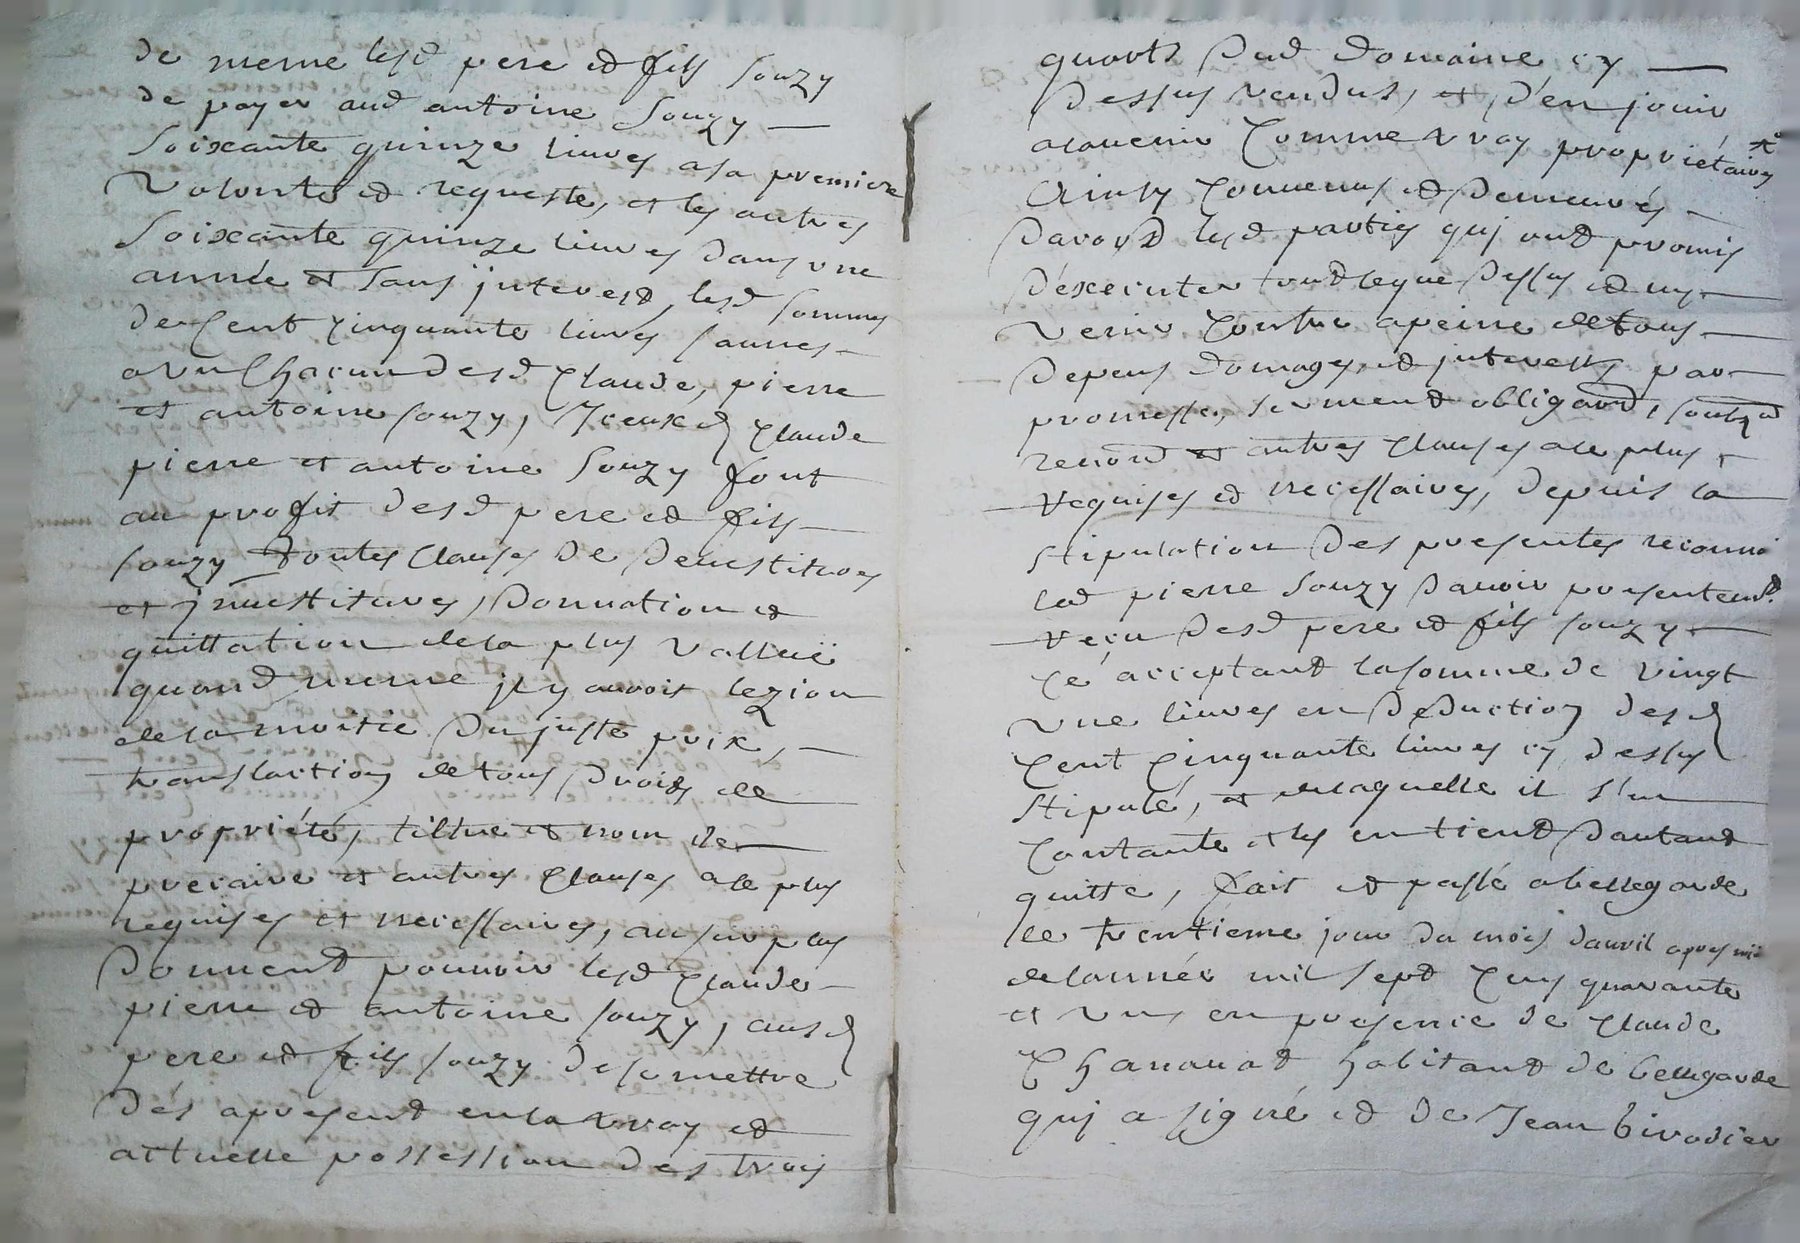 de meme lesd pere et fils souzy
de payer aud antoine Souzy
Soixante quinze livres a sa premiere
volonté et requeste, et les autres
Soixante quinze livres dans une
année et sans jnterest, lesd sommes
de Cent Cinquante livres faines
a un Chacun desd Claude, pierre
et antoine souzy, Jceuxd Claude
pierre et antoine Souzy font
au profit desd pere et fils
souzy toutes Clauses de devestitures
et jnvestitures, Donnation et
quittation de la plus vallue
quand meme jl y auroit lezion
de la moitié du juste prix,
translaction de tous droits de
propriété, tiltre et nom de
precaire et autres Clauses a ce plus
requises et necessaires, au surplus
Donnent pouvoir lesd Claude
pierre et antoine souzy, ausd
pere et fils souzy de se mettre
dés apresent en la vray et
actuelle possession des trois
quarts dud Domaine cy
dessus vendus, et d'en jouir
alavenir Comme vray propriétaires
Ainsy Convenus et demeurés
Dacord lesd parties quj ont promis
d'exécuter tout ce que dessus et ny
venir Contre a peine de tous
depens domages, et jnterests par
promesse, serment obligaōn, soubzōn
renonōn et autres Clauses a ce plus
requises et necessaires, depuis la
stipulation des presentes reconnoi
led pierre Souzy davoir presentemt
reçu desd pere et fils souzy
Cé acceptant la somme de vingt
une livres en Deduction desd
Cent Cinquante livres cy dessus
stipulé, et de laquelle il s'en
Contante et les en tient dautant
quitte, fait et passé a bellegarde
le trentieme jour du mois dauril apres midi
de lannée mil sept Cens quarante
et un en presence de Claude
Chanauat habitant de bellegarde
quj a signé et de Jean birodier